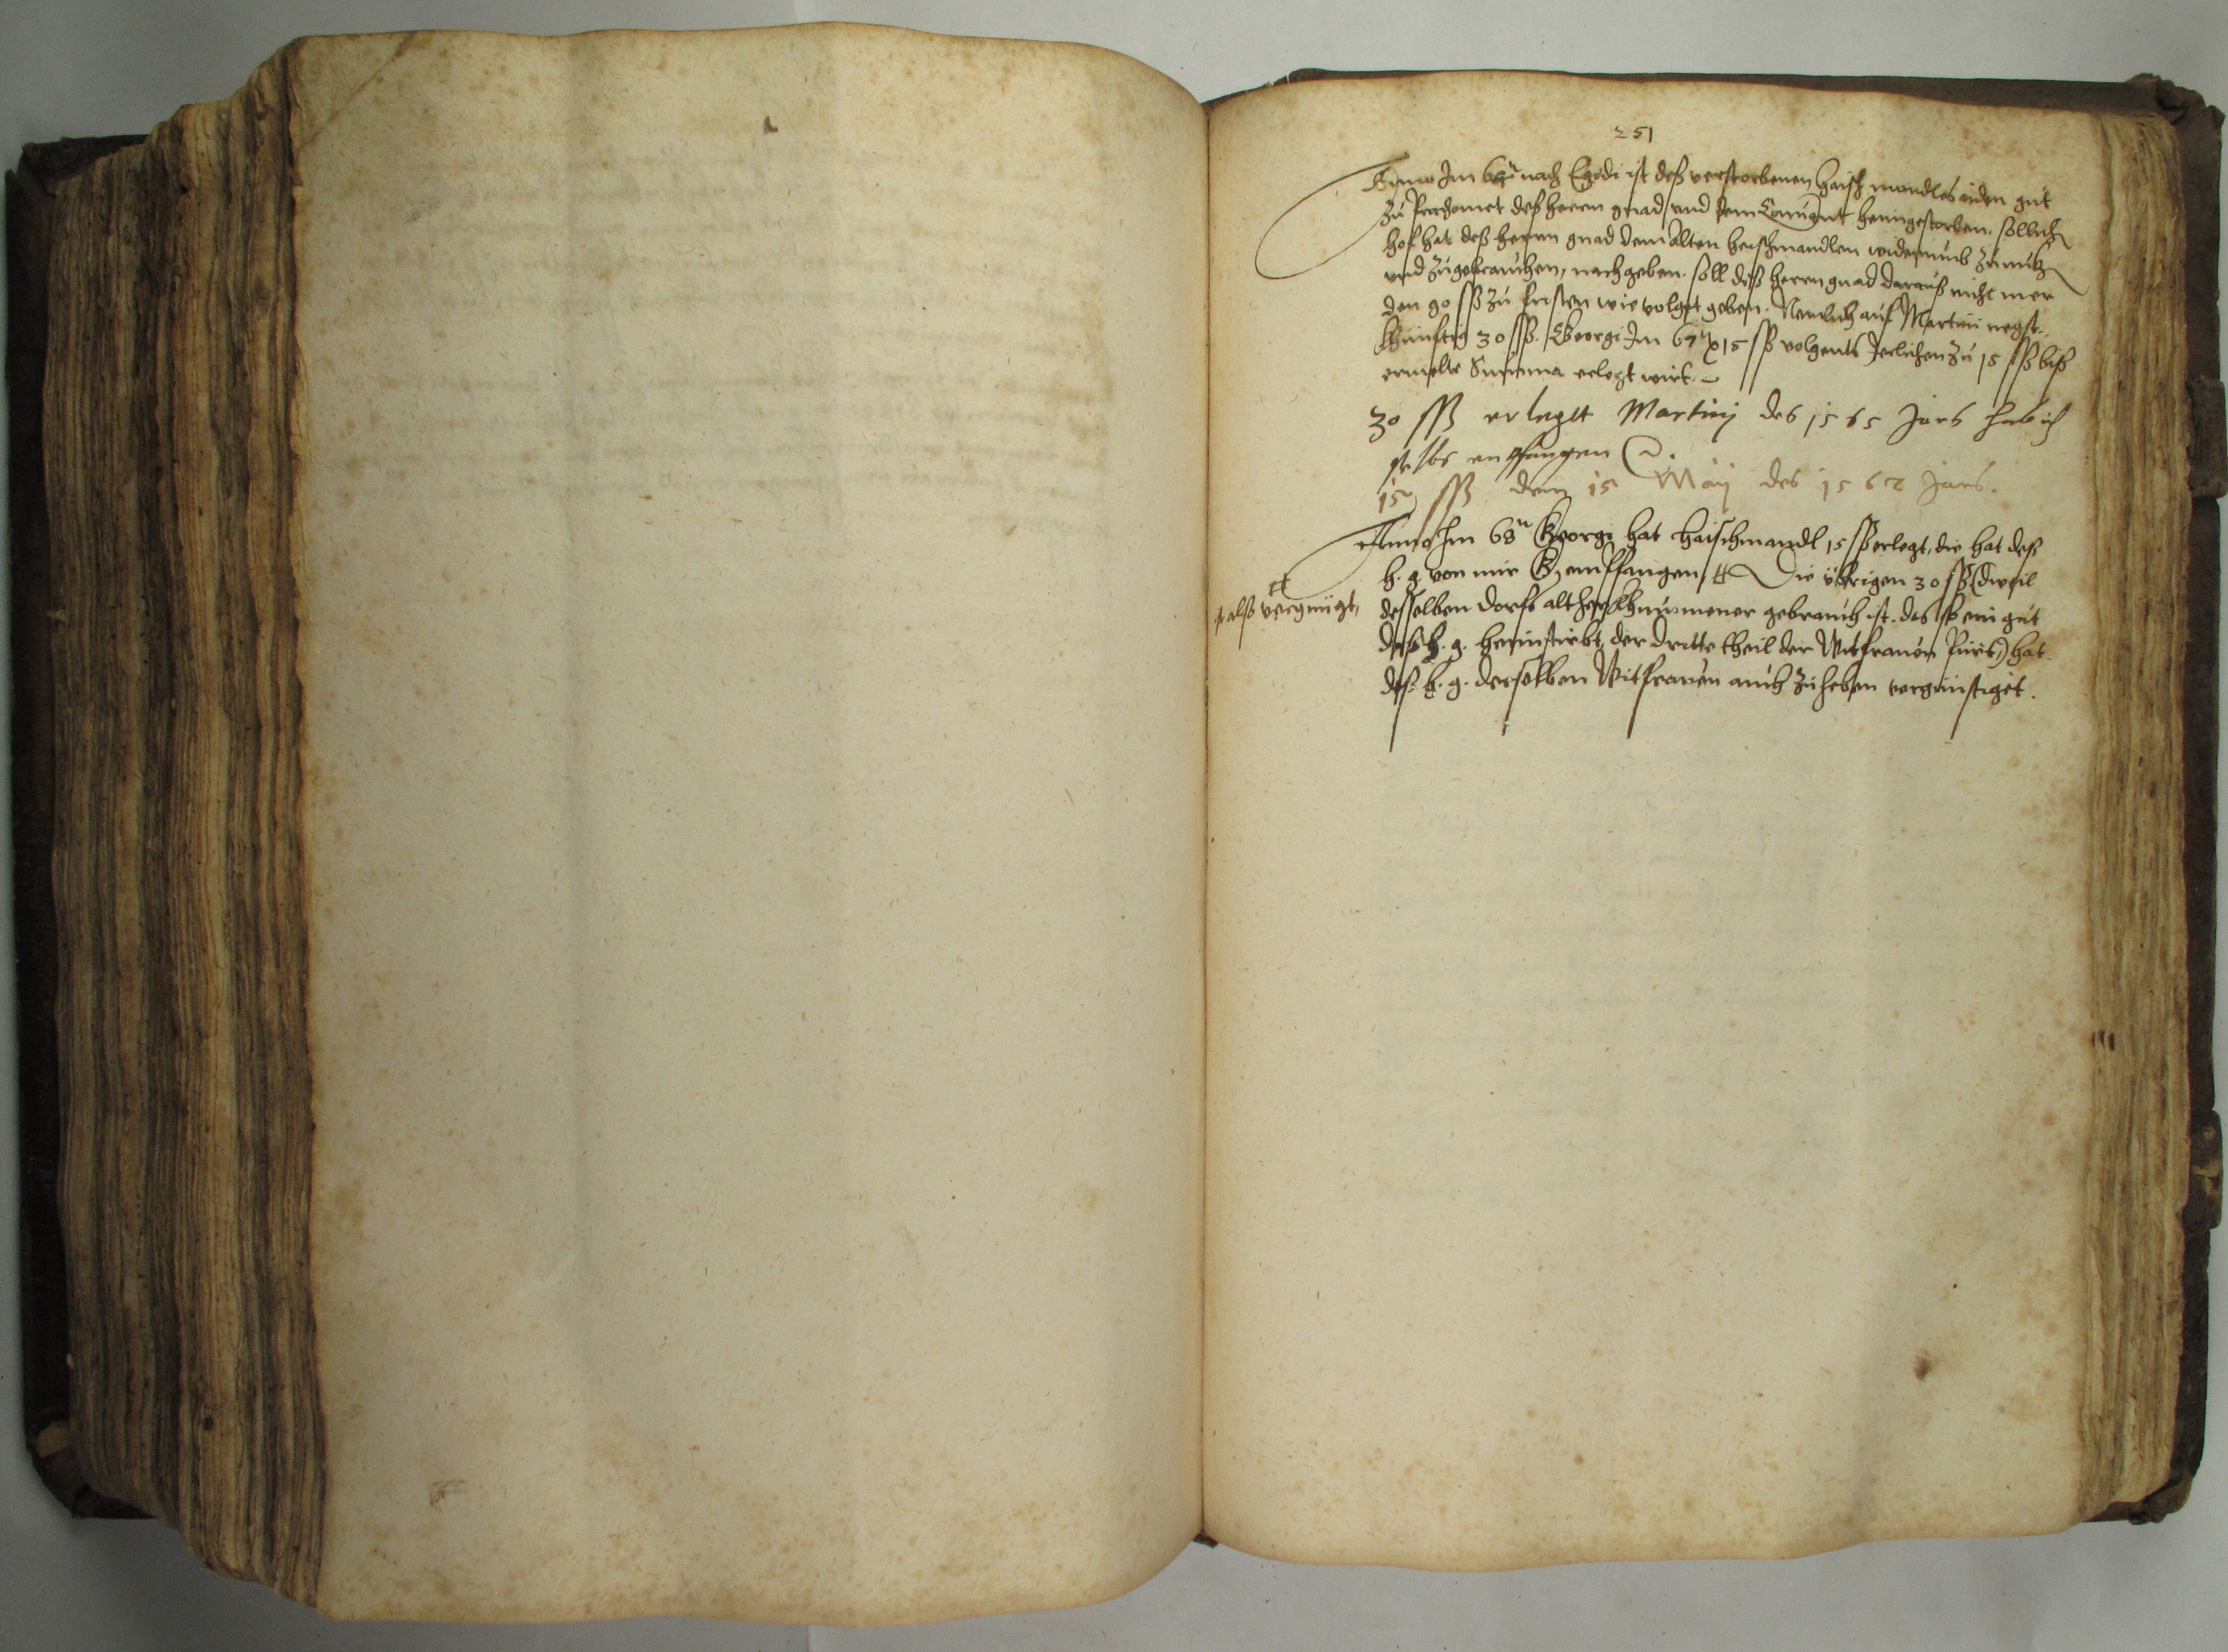 251
Anno Im 65ᵗᵉⁿ nach Egidi ist deß verstorbenen Haischmandles aiden gut
zu Perchomet deß herrn gnad / und dem Conuent heimgestorben. sollich
hof hat deß herrn gnad dem Alten Heischmandlen widerumb zu nutz
und zugebrauchen, nachgeben. soll deß herrn gnad darauß nicht mer
den 90 ßß zu fristen wie volgt geben. Nemlich auf Martini negst
khünftig 30 ßß. Georgi Im 67ᵗⁿ 15 ßß volgents Jerlichen zu 15 ßß biß
ermelte Summa erlegt wirt.
30 ßß erlegtt Martinj des 1565 Jars hab ich
selbs entpfangen
15 ßß dem 15 Maij des 1567 Jars.
Anno Im 68ᵗⁿ Georgi hat Haischmandl 15 ßß erlegt, die hat deß
h. g. von mir G, empfangen, # Die übrigen 30 ßß (dweil
desselben dorfs alt herkhummener gebrauch ist. das so ein gut
deß h. g. heimstirbt, der dritte theil der Witfrauen pürt) hat
deß h. g. derselben Witfrauen auch zu heben vergünstiget.
#
alß vergnügt,